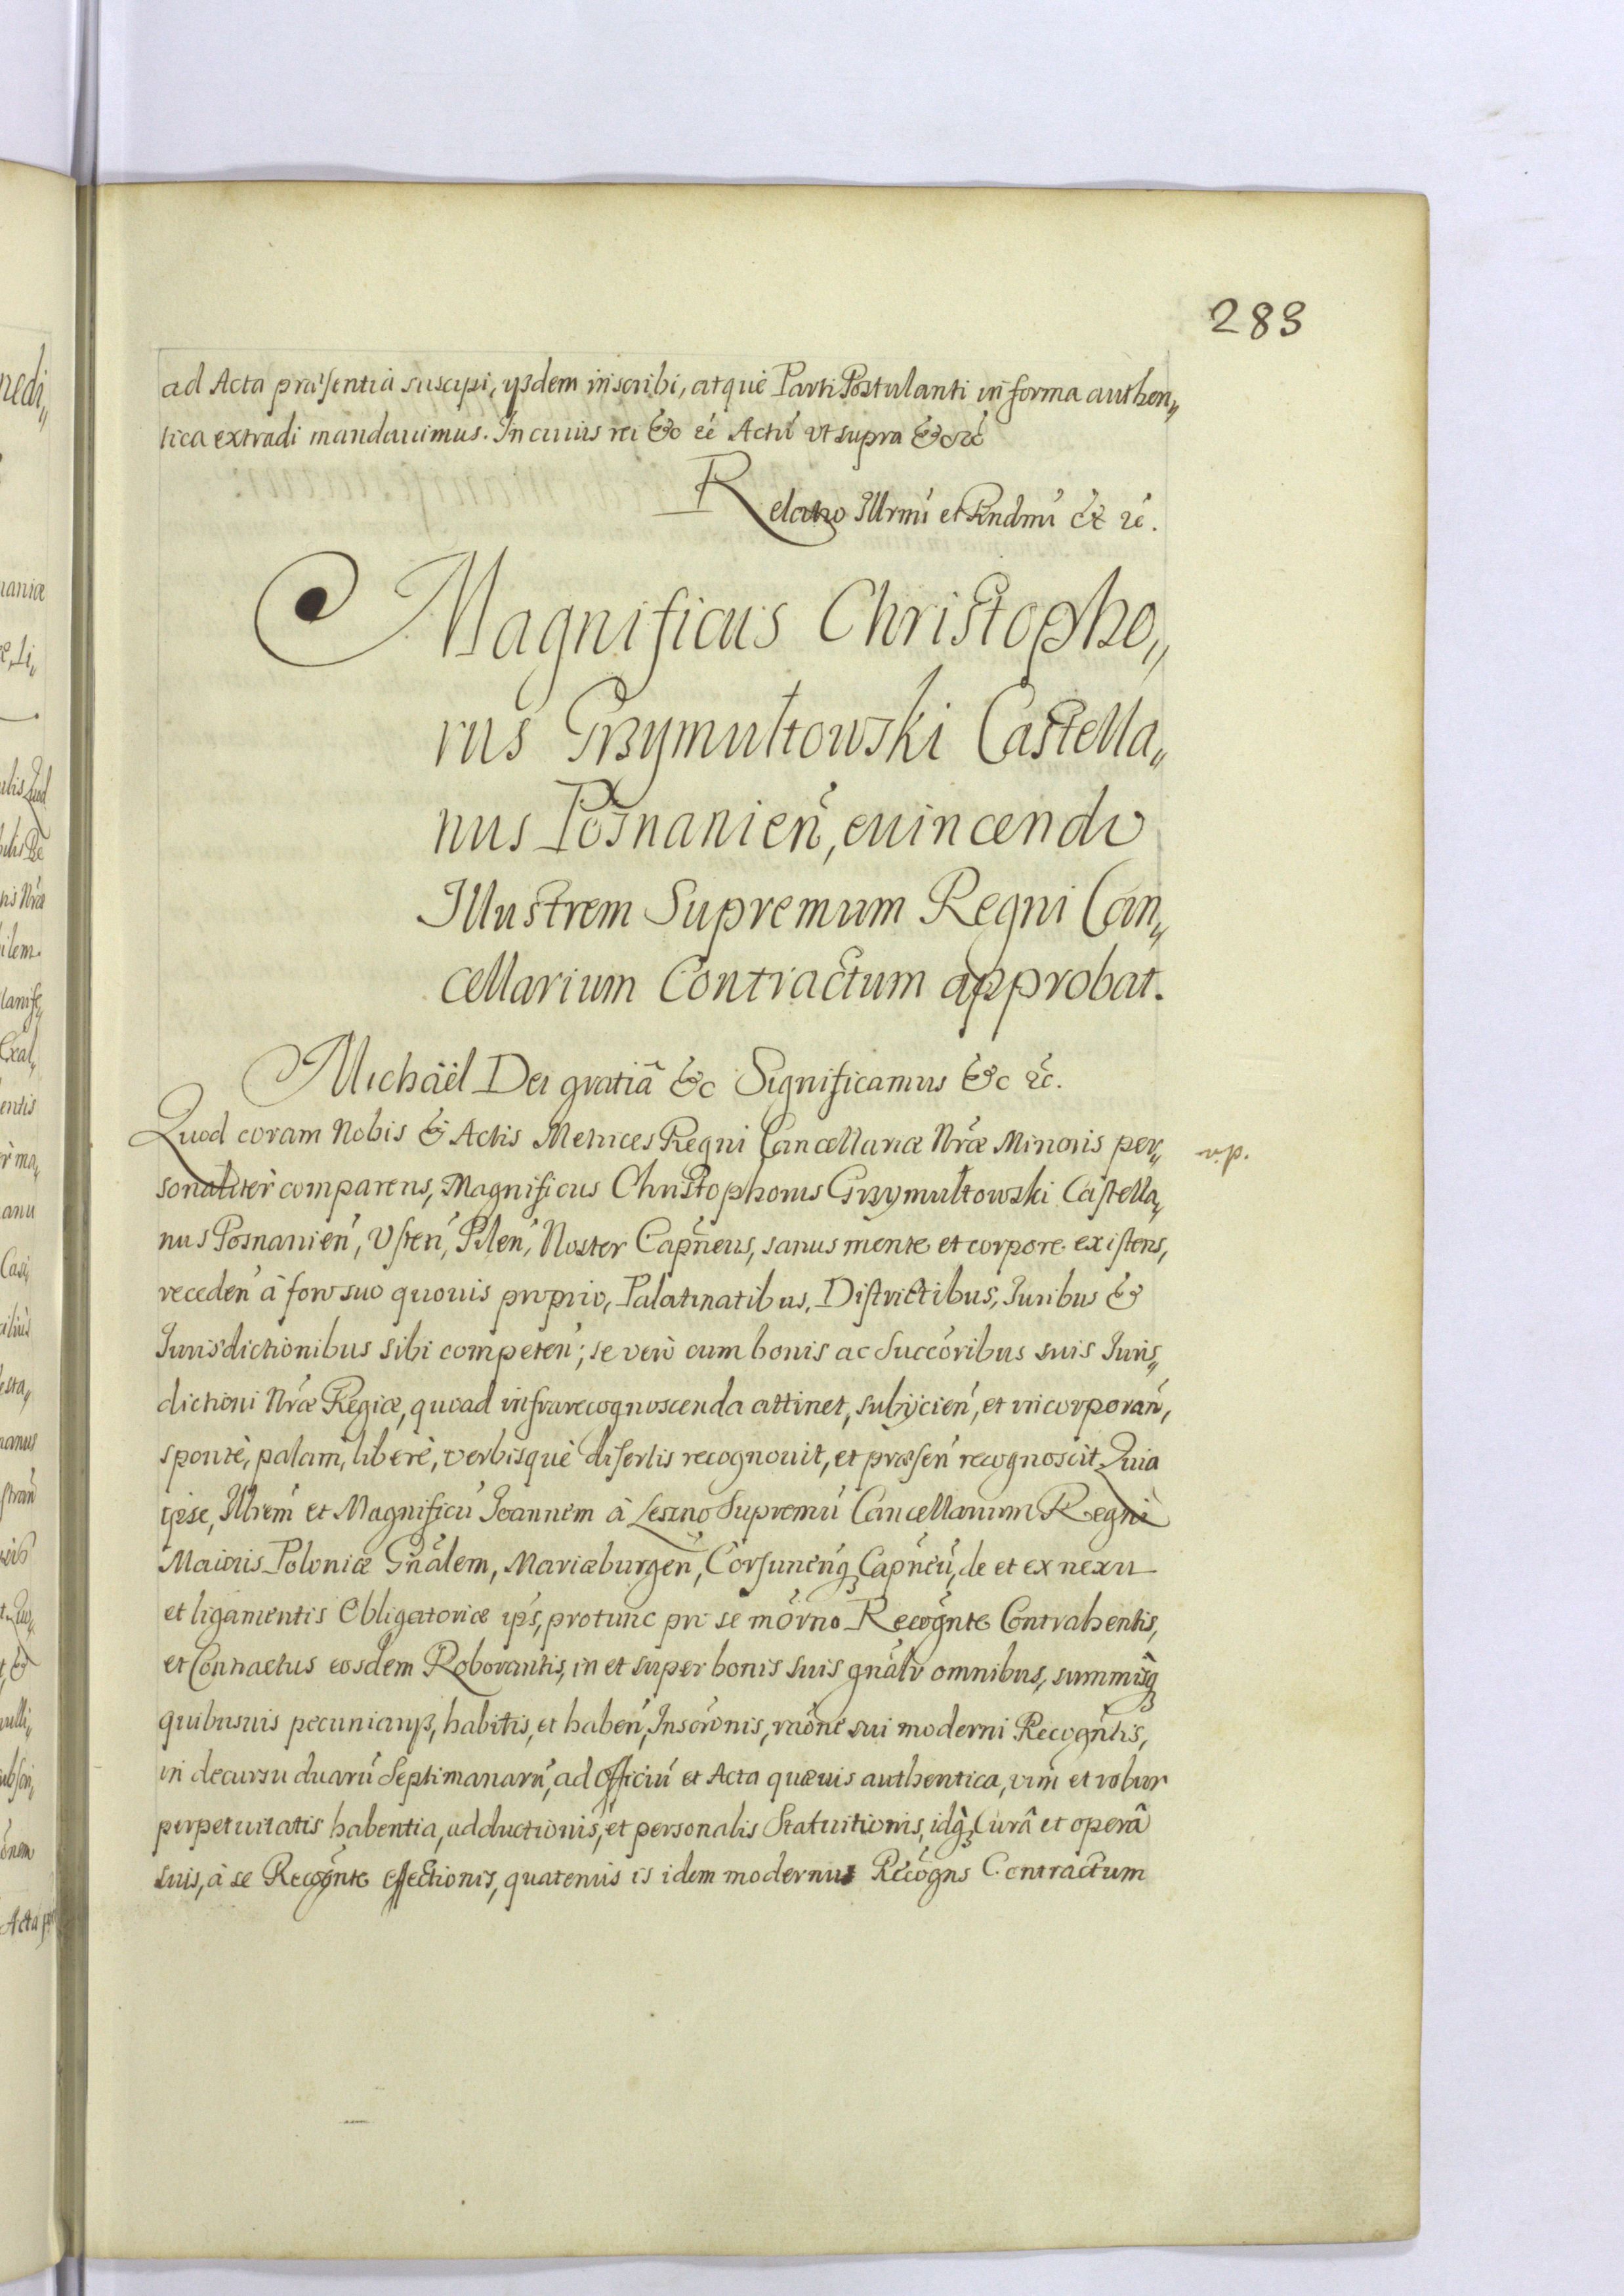 283
ad Acta præsentia suscipi, ijsdem inscribi, atquè Parti Postulanti in forma authen„
tica extradi mandavimus. In cuius rei &c rć Actú vt supra &c rć
Relatio Illrmi et Rndmi &c rć.
Magnificus Christopho„
rus Grzymultowski Castella„
nus Posnanień, evincendo
Illustrem Supremum Regni Can„
cellarium Contractum approbat.
Michäël Dei gratiâ &c Significamus &c rć.
Quod coram Nobis & Actis Metrices Regni Cancellariæ Nræ Minoris per„
v.p.
sonalitèr comparens, Magnificus Christophorus Grzymultowski Castella„
nus Posnanień, Usteń, Pileń, Noster Capneus, sanus mente et corpore existens,
recedeń à foro suo quovis proprio, Palatinatibus, Districtibus, Juribus &
Jurisdictionibus sibi competeń; se verò cum bonis ac Succoribus suis Juris„
dictioni Nræ Regiæ, quoad infrarecognoscenda attinet, subijcień, et incorporań,
spontè, palam, liberè, verbisquè disertis recognovit, et præseń recognoscit. Quia
ipse, Illrem et Magnificú Joannem à Leszno Supremú Cancellarium Regni
Maioris Poloniæ Gnãlem, Mariæburgeń, Corsuneńq Capneú, de et ex nexu
et ligamentis Obligatoriæ ips, protunc pri se mõrno Recognte Contrahentis,
et Contractus eosdem Roborantis, in et super bonis suis gnãlr omnibus, summisq
quibusuis pecuniarijs, habitis, et habeń, Inscronis, raõne sui moderni Recogntis,
in decursu duarú Septimanarú, ad Officiú et Acta quævis authentica, vim et robur
perpetuitatis habentia, adductionis, et personalis Statuitionis, idq Curâ et operâ
suis, à se Recognte effectionis, quatenus is idem modernus Recogns Contractum